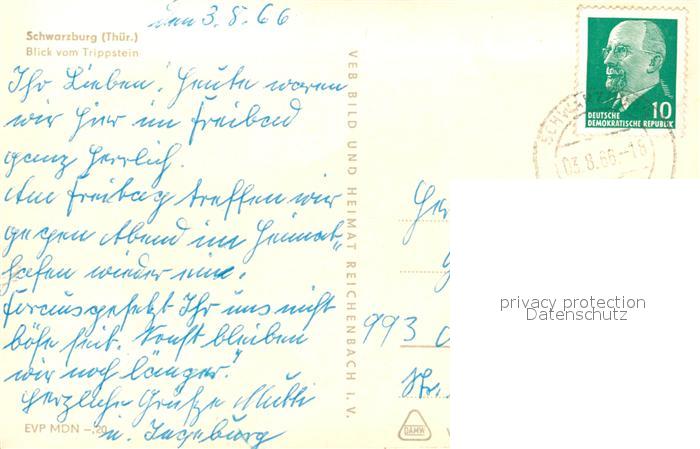 den 3.8.66
Schwarzburg (Thür.)
Blick vom Trippstein
Ihr Lieben! Heute waren
wir hier im Freibad
ganz herrlich.
Am Freitag treffen wir
gegen Abend im Heimat-
hafen wieder ein.
Forausgesetzt Ihr uns nicht
böse seit. Sonst bleiben
wir noch länger."
Herzliche Grüße Mutti
u. Ingeburg
EVP MDN -.20
VEB BILD UND HEIMAT REICHENBACH I. V.
10
DEUTSCHE
DEMOKRATISCHE REPUBLIK
03.8.66-16
993
Str.
DAMW
privacy protection
Datenschutz